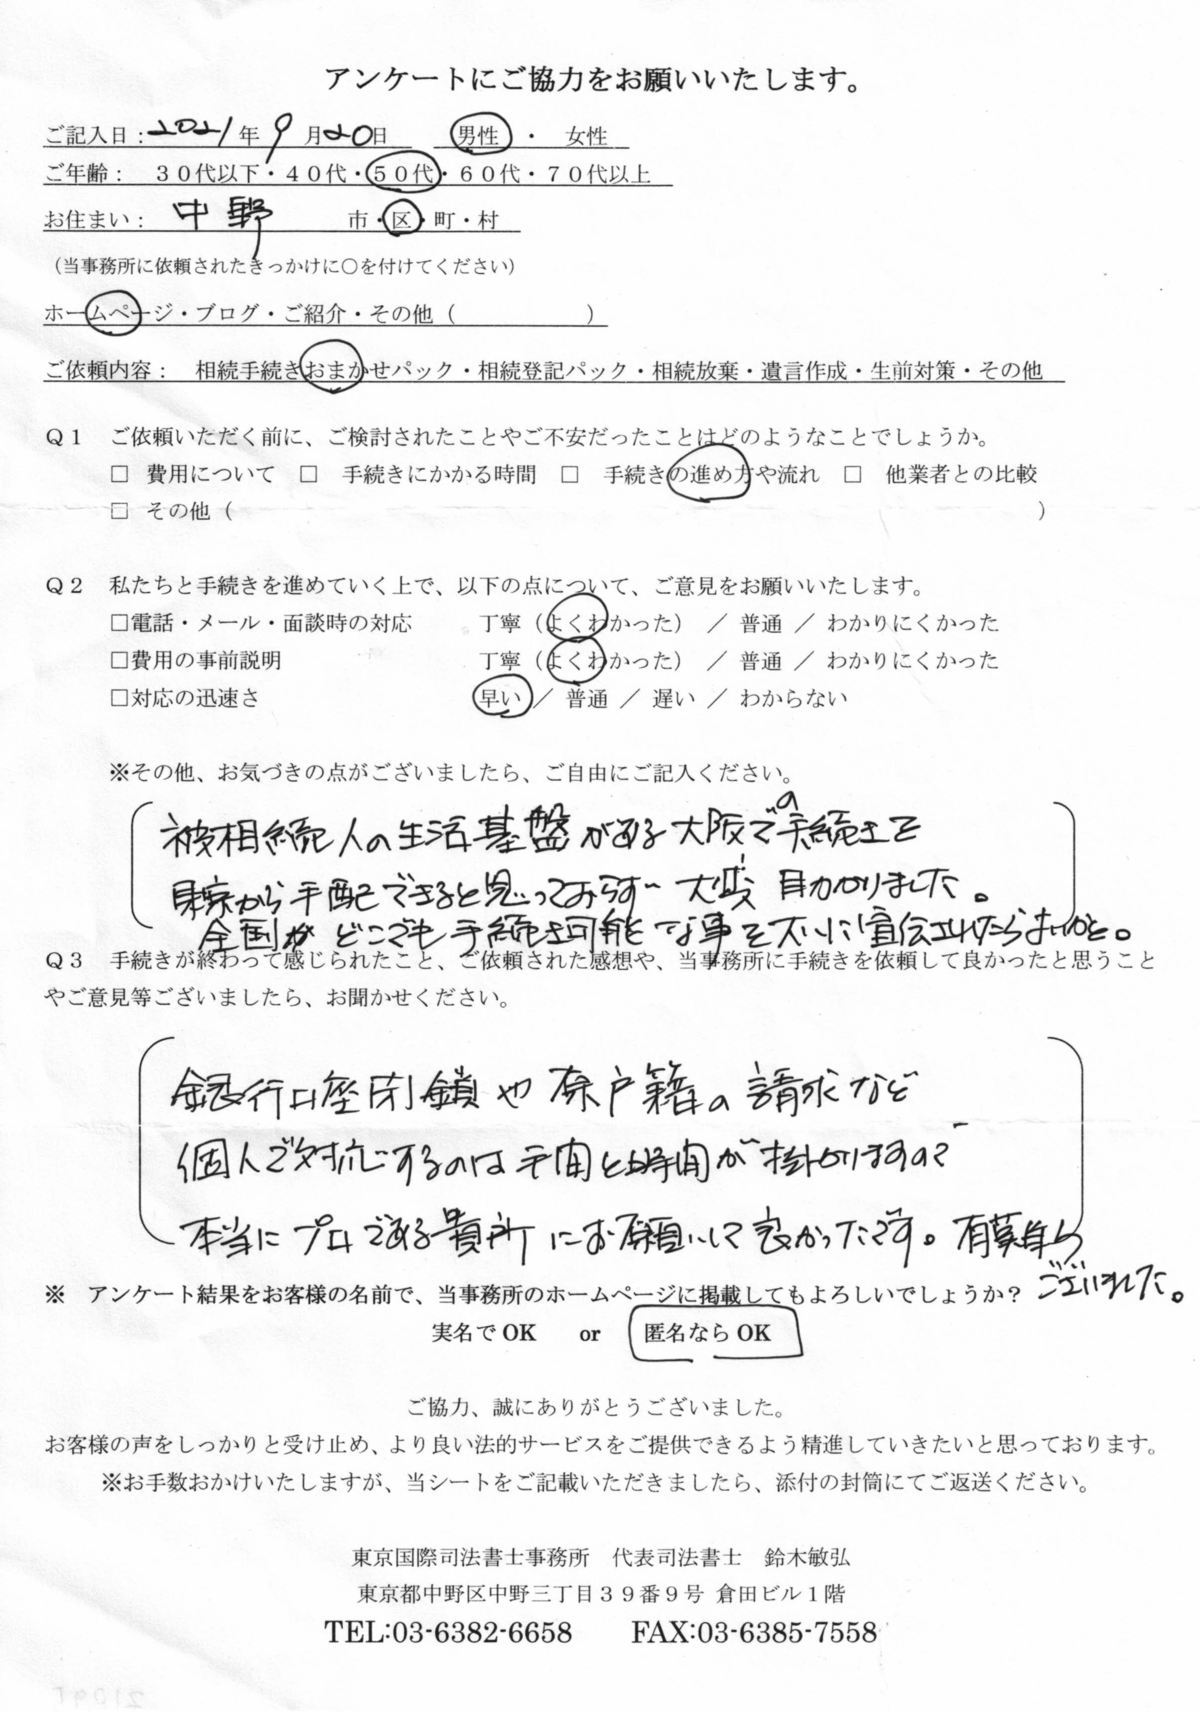 アンケートにご協力をお願いいたします。
ご記入日：2021年 9月20日　男性 ・ 女性
ご年齢：　３０代以下・４０代・５０代・６０代・７０代以上
お住まい：　中野　市・区・町・村
（当事務所に依頼されたきっかけに○を付けてください）
ホームページ・ブログ・ご紹介・その他（　　　　　　）
ご依頼内容：　相続手続きおまかせパック・相続登記パック・相続放棄・遺言作成・生前対策・その他
Ｑ１　ご依頼いただく前に、ご検討されたことやご不安だったことはどのようなことでしょうか。
□ 費用について　□ 手続きにかかる時間　□ 手続きの進め方や流れ　□ 他業者との比較
□ その他（　　　　　　　　　　　　）
Ｑ２　私たちと手続きを進めていく上で、以下の点について、ご意見をお願いいたします。
□電話・メール・面談時の対応　丁寧（よくわかった） ／ 普通 ／ わかりにくかった
□費用の事前説明　丁寧（よくわかった） ／ 普通 ／ わかりにくかった
□対応の迅速さ　早い ／ 普通 ／ 遅い ／ わからない
※その他、お気づきの点がございましたら、ご自由にご記入ください。
被相続人の生活基盤がある大阪での手続きを
東京から手配できると思っておらず 大変 助かりました。
全国が どこでも 手続き可能 な事を 大いに宣伝されたらよいかと。
Ｑ３　手続きが終わって感じられたこと、ご依頼された感想や、当事務所に手続きを依頼して良かったと思うこと
やご意見等ございましたら、お聞かせください。
銀行口座閉鎖や 原戸籍の 請求など
個人で対応するのは 手間と時間が 掛かりますので
本当に プロである貴所 にお願いして 良かったです。有難う
ございました。
※　アンケート結果をお客様の名前で、当事務所のホームページに掲載してもよろしいでしょうか？
実名で OK　or　匿名なら OK
ご協力、誠にありがとうございました。
お客様の声をしっかりと受け止め、より良い法的サービスをご提供できるよう精進していきたいと思っております。
※お手数おかけいたしますが、当シートをご記載いただきましたら、添付の封筒にてご返送ください。
東京国際司法書士事務所　代表司法書士　鈴木敏弘
東京都中野区中野三丁目３９番９号 倉田ビル１階
TEL:03-6382-6658　FAX:03-6385-7558